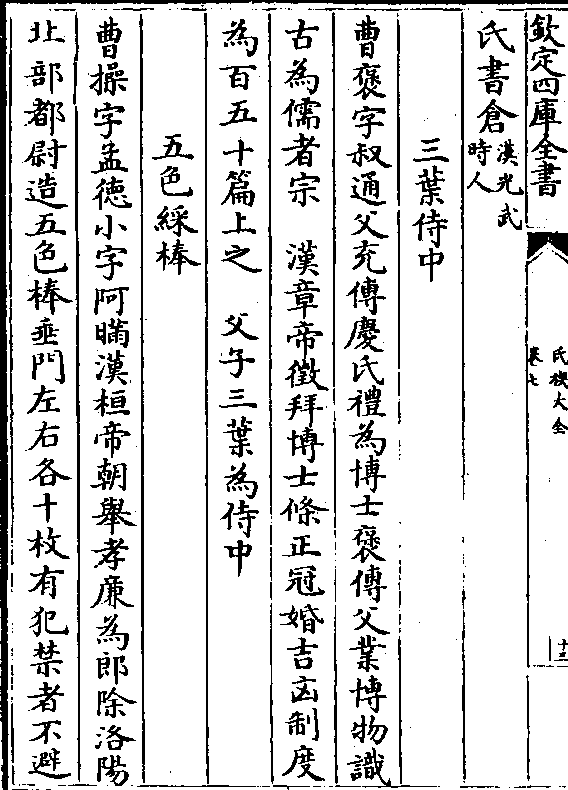 欽定四庫全書
氏族大全
卷七
十三
氏書倉漢光武
時人
三葉侍中
曹褒字叔通父充傳慶氏禮為博士褒傳父業博物識
古為儒者宗　漢章帝徵拜博士條正冠婚吉凶制度
為百五十篇上之　父子三葉為侍中
五色綵棒
曹操字孟德小字阿瞞漢桓帝朝舉孝廉為郎除洛陽
北部都尉造五色棒垂門左右各十枚有犯禁者不避